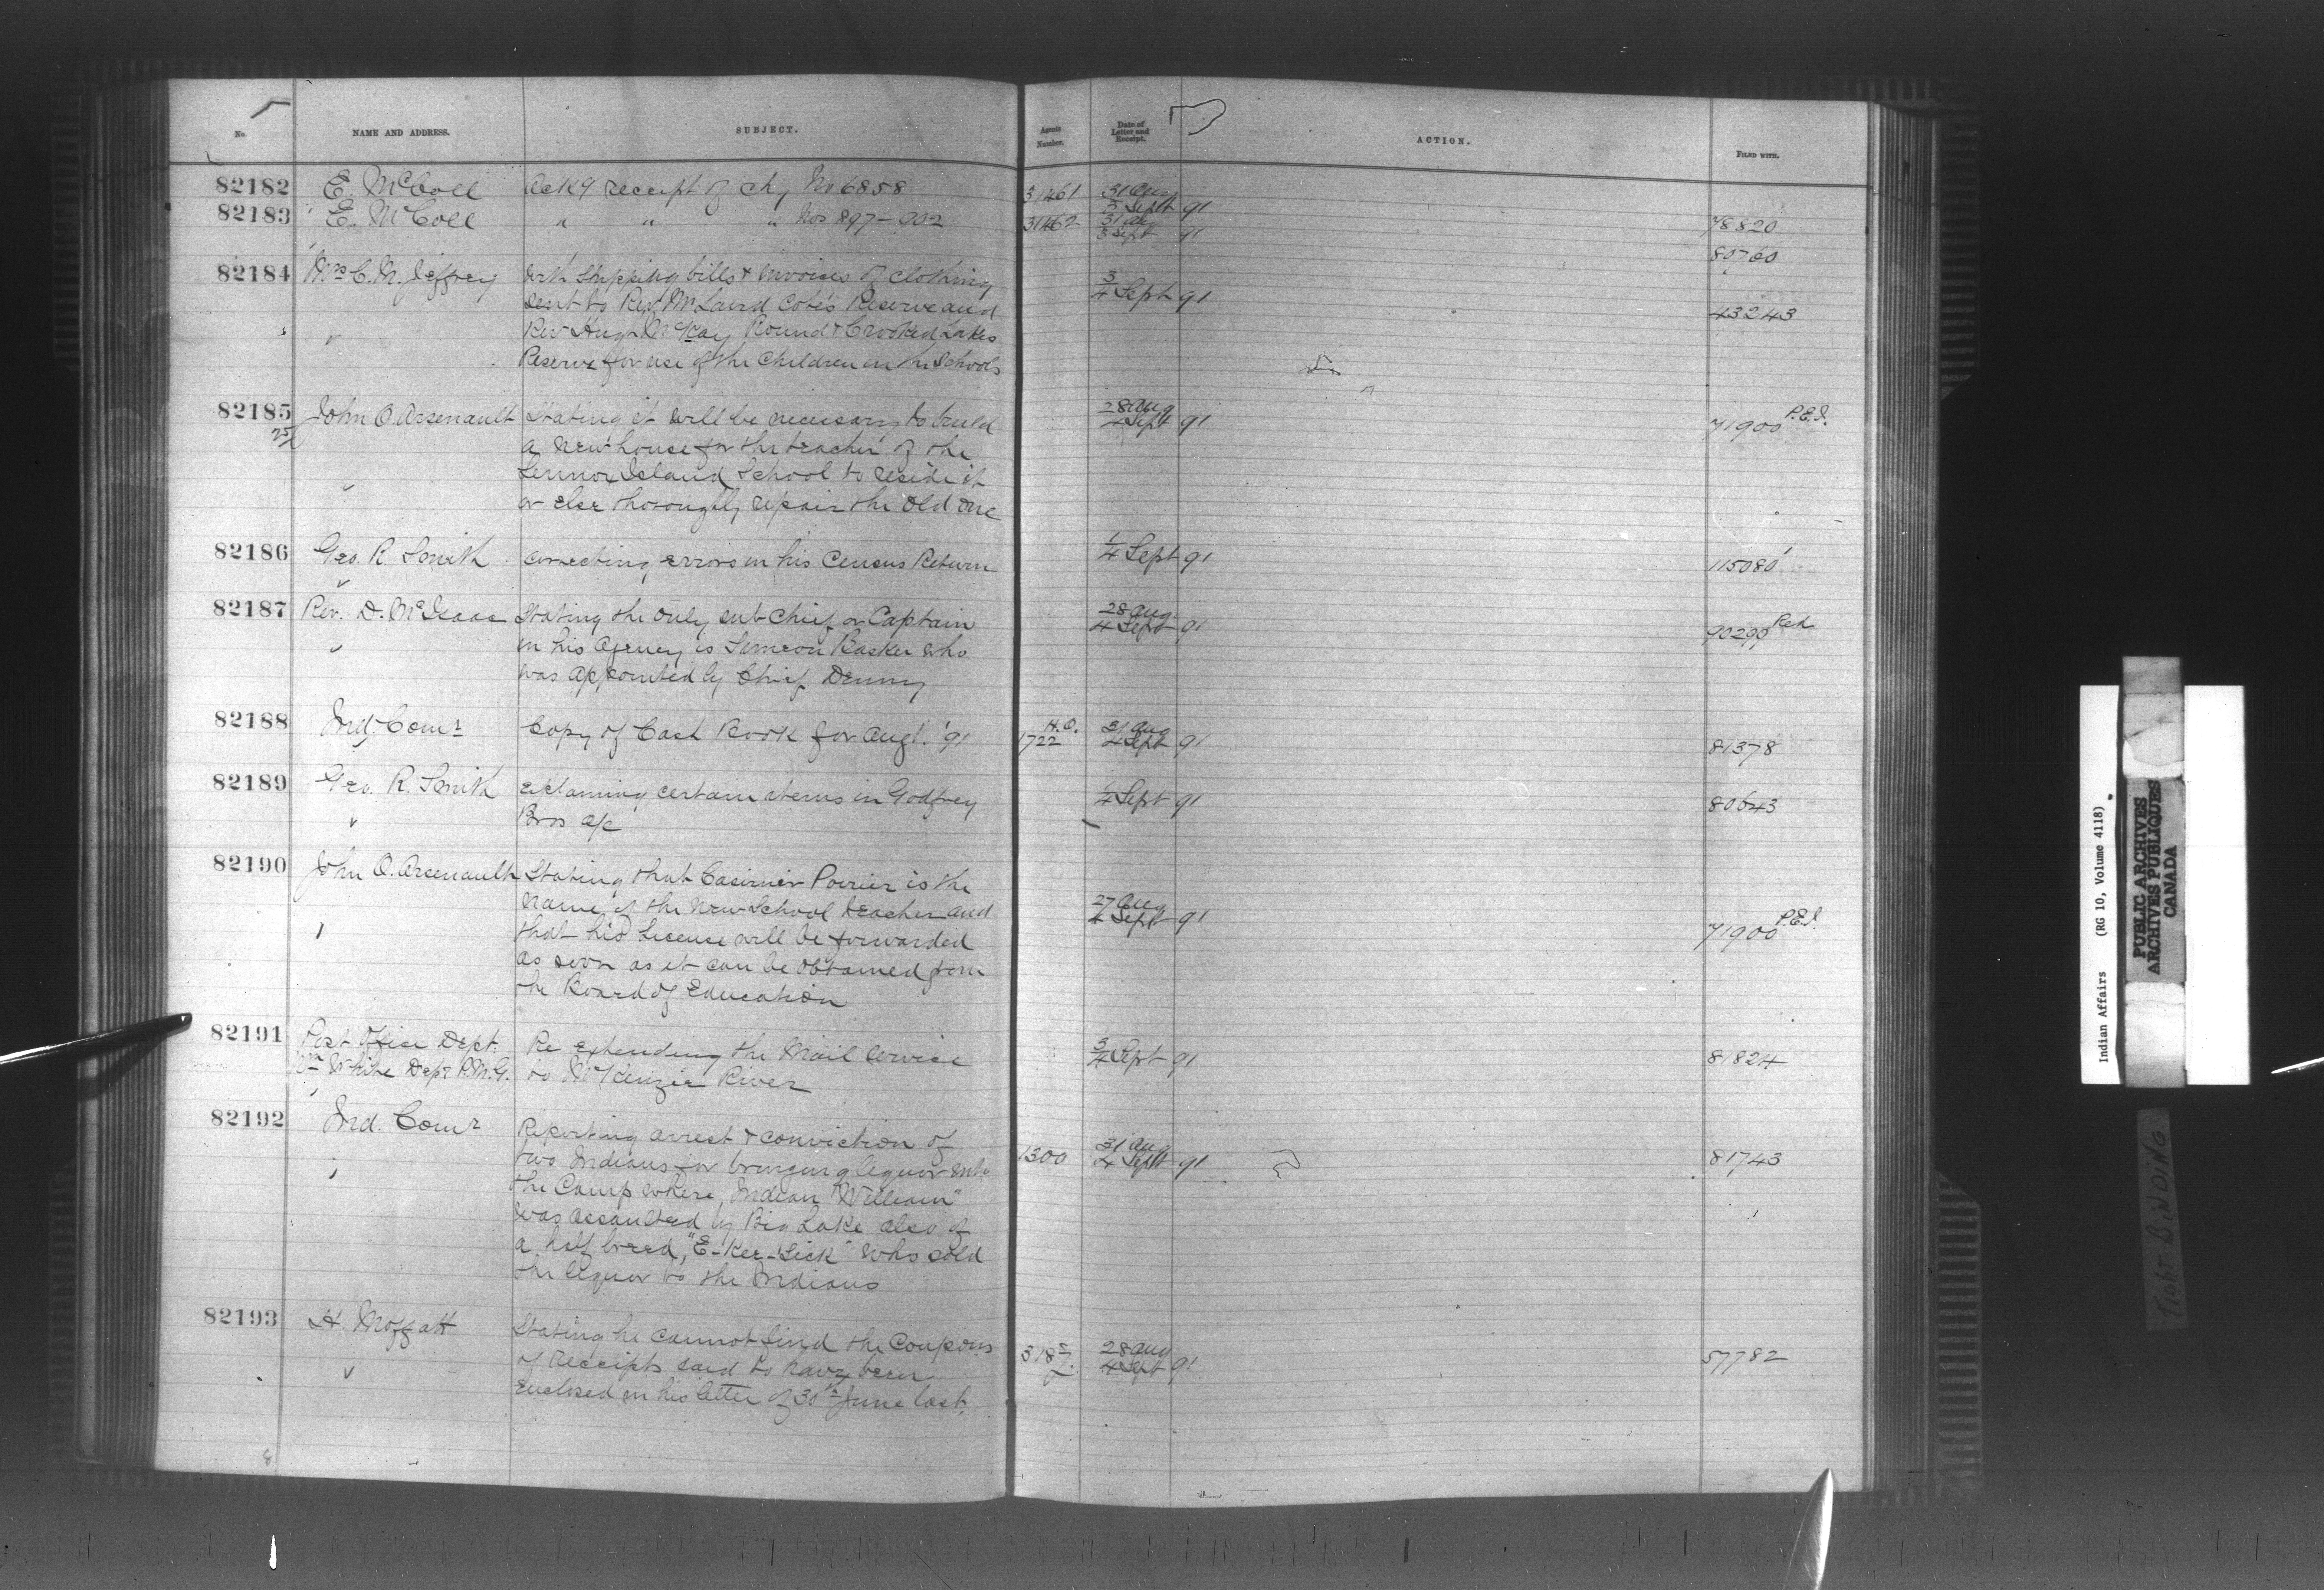 No. NAME AND ADDRESS. SUBJECT. Agents Number. Date of Letter and Receipt. ACTION. FILED WITH.
82182 E. McColl Ackg receipt of chq No 6858 31461 31 Aug 3 Sept 91 78820
82183 E. McColl " " " Nos 897-902 31462 31 Aug 3 Sept 11 80760
82184 Mrs C. M. Jeffrey With Shipping bills & invoices of clothing 3/4 Sept 91 43243
sent to Rev Mr Laird Cote's Reserve and
Rev Hugh McKay Round & Crooked Lakes
Reserve for use of the Children in the Schools
82185 John O. Arsenault Stating it will be necessary to build 28 Aug 4 Sept 91 71900 P.E.I.
25/ a new house for the teacher of the
Lennox Island School to reside it
or else thoroughly repair the old one
82186 Geo. R Smith correcting errors in his Census Return 1/4 Sept 91 115080
82187 Rev. D. McIsaac Stating the only sub Chief or Captain 28 Aug 4 Sept 91 90299 Red
in his Agency is Simeon Basker who
was appointed by Chief Denny
82188 Ind. Comr Copy of Cash Book for Augt. '91 H.O. 1722 31 Aug 4 Sept 91 81378
82189 Geo. R. Smith explaining certain items in Godfrey 1/4 Sept 91 80643
Bros a/c
82190 John O. Arsenault Stating that Casimir Poirier is the
name of the new School teacher and 27 Aug 4 Sept 91 71900 P.E.I.
that his License will be forwarded
as soon as it can be obtained from
the Board of Education
82191 Post Office Dept. Re extending the Mail service 3/4 Sept 91 81824
Wm White Dep. P.M.G. to McKenzie River
82192 Ind. Comr Reporting arrest & conviction of
two Indians for bringing liquor into 1300 31 Aug 4 Sept 91 81743
the Camp where, Indian "William"
was assaulted by Big Lake also of
a half breed, "E-Kee-Sick" who sold
the liquor to the Indians
82193 H. Moffatt Stating he cannot find the Coupons 318 28 Aug 4 Sept 91 57782
of receipts said to have been
enclosed in his letter of 30th June last.
Indian Affairs (RG 10, Volume 4118)
PUBLIC ARCHIVES
ARCHIVES PUBLIQUES
CANADA
TIGHT BINDING